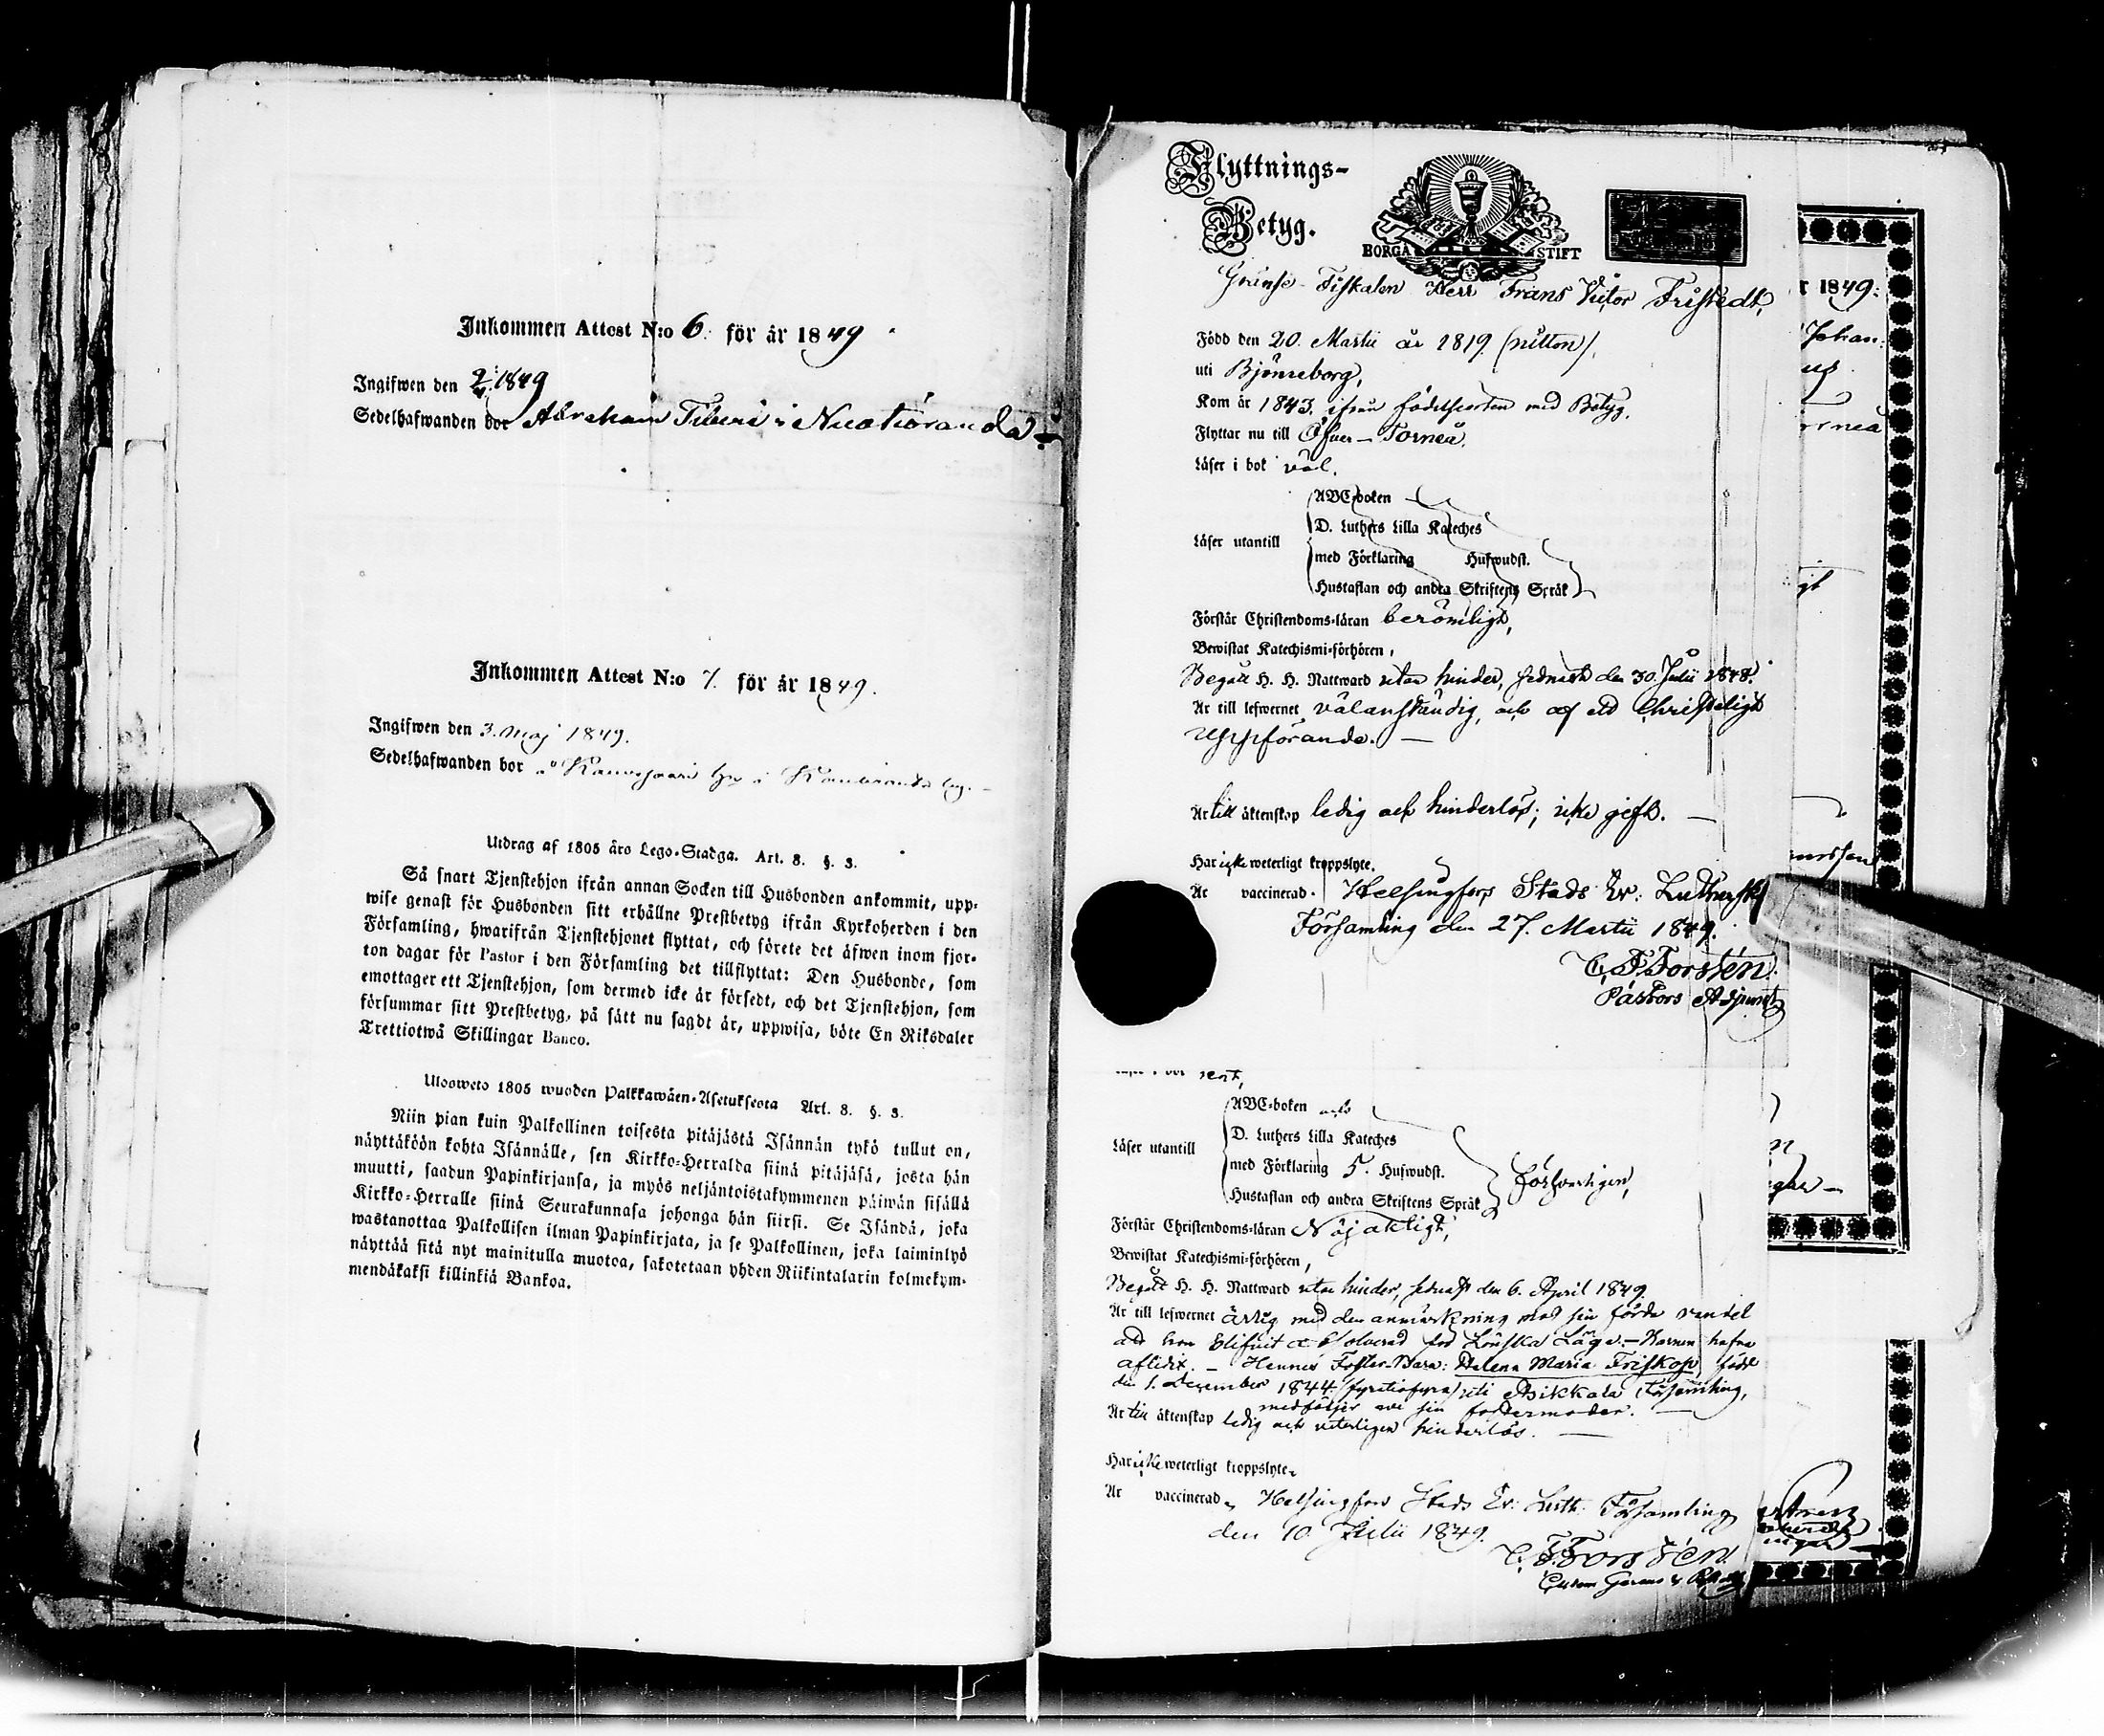 Inkommen Attest N:o 6. för år 1849
Ingifwen den 1849
Sedelhafwanden bor Abraham i
Inkommen Attest N:o 7. för år 1849.
Ingifwen den 3. Maj 1849.
Sedelhafwanden bor
Utdrag af 1805 års Lego-Stadga. Art. 8. §. 3.
Så snart Tjenstehjon ifrån annan Socken till Husbonden ankommit, upp-
wise genast för Husbonden sitt erhållne Prestbetyg ifrån Kyrkoherden i den
Församling, hwarifrån Tjenstehjonet flyttat, ochförete det äfwen inom fjor-
ton dagar för Pastor i den Församling det tillflyttat: Den Husbonde, som
emottager ett Tjenstehjon, som dermed icke är försedt, och det Tjenstehjon, som
försummar sitt Prestbetyg, på sätt nu sagdt är, uppwisa, böte En Riksdaler
Trettiotwå Skillingar Banco.
Ulosweto 1805 wuoden Palkkawäen-Asetuksesta Art. 8. §. 3.
Niin pian kuin Palkollinen toisesta pitäjästä Isännän tykö tullut on,
näyttäköön kohta Isännälle, sen Kirkko-Herralda siinä pitäjäsä, josta hän
muutti, saadun Papinkirjansa, ja myös neljäntoistakymmenen päiwän sisällä
Kirkko-Herralle siinä Seurakunnasa johonga hän siirsi. Se Isändä, joka
wastanottaa Palkollisen ilman Papinkirjata, ja se Palkollinen, joka laiminlyö
näyttää sitä nyt mainitulla muotoa, sakotetaan yhden Riikintalarin kolmekym-
mendäkaksi killinkiä Bankoa.
Flyttnings-
Betyg.
BORGÅ STIFT
Gränse-Fiskalen Herr Frans Victor Fristedt,
Född den 20. Martii år 1819. (nitton),
uti Björneborg,
Kom år 1843. ifrån födelseorten med Betyg.
Flyttar nu till Öfver-Torneå.
Läser i bok väl.
ABC-boken
D. Luthers Lilla Kateches
Läser utantill
med Förklaring Hufwudst.
Hustaflan och andra Skriftens Språk
Förstår Christendoms-läran berömligt,
Bewistat Katechismi-förhören,
Begått H. H. Nattward utan hinder, sednast den 30. Julii 1848.
Är till lefwernet välanständig, och af ett Christeligt
uppförande.
Är till äktenskap ledig och hinderlös; icke gift.
Har icke weterligt kroppslyte.
Är vaccinerad. Helsingfors Stads Ev: Lutherska
Församling den 27. Martii 1849.
C. F. Forstén.
Pastors Adjunct
r 1849:
Johan:
rneå
rent,
ABC-boken och
D. Luthers Lilla Kateches
Läser utantill
med Förklaring 5. Hufwudst.
Hustaflan och andra Skriftens Språk
försvarligen,
Förstår Christendoms-läran Nöjaktligt,
Bewistat Katechismi-förhören,
Begått H. H. Nattward utan hinder, sednast den 6. April 1849.
Är till lefwernet ärlig med den anmärkning mot sin förda vandel
att hon blifvit absolverad för Lönska Läge. - Barnen hafva
aflidit. - Hennes Foster-Barn: Helena Maria Friskopp, född
den 1. December 1844 (fyratiofyra) uti Asikkala Församling,
medföljer nu sin fostermoder.
Är till äktenskap ledig och veterligen hinderlös.
Har icke weterligt kroppslyte.
Är vaccinerad, Helsingfors Stads Ev: Luth: Församling
den 10 Julii 1849.
C. F. Forstén.